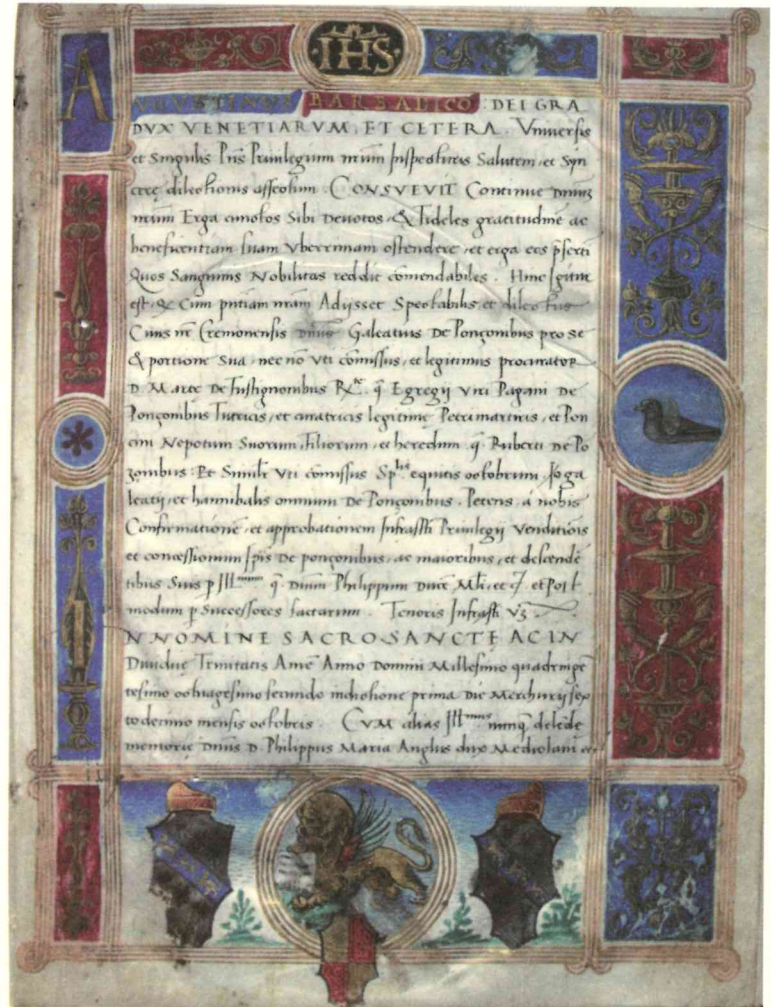 ·IHS·
A
VGVSTINVS BARBADICO : DEI GRA
DVX VENETIARVM, ET CETERA. Vniuersis
et Singulis Pñs Priuilegium nrum Inspecturis Salutem, et Syn
cere dilectionis affectum. CONSVEVIT Continue Dniuz
nrum Erga cunctos Sibi Deuotos, & fideles gratitudinē ac
beneficentiam suam Vberrimam ostendere, et erga eos pserti
Quos Sanguinis Nobilitas reddit comendabiles. Hinc Igitur
est, Cum pntiam nram Adysset Spectabilis et dilectus
Ciuis nr Cremonensis Galeatius De Ponçonibus pro se
& portione Sua, nec nō Vti comissus, et legitimus procurator
D. q. Egregij Viri Pagani De
Ponçonibus Tutricis, et curatricis legitime Petrimartiris, et Pon
cini Nepotum Suorum, Filiorum, et heredum q. Ruberti De Po
zonibus: Et Simili Vti comissus equitis Joga
leatij, et hannibalis omnium De Ponçonibus. Petens à nobis
Confirmationē, et approbationem Infrasti Priuilegij Venditiōis
et concessionum Ipis De ponçonibus, ac maioribus, et descendē
tibus Suis p Ill q. Dnum Philippum Duce Mli, et et Post
modum p Successores factarum. Tenoris Infrasti Vz
N NOMINE SACROSANCTE AC IN
Diuidue Trinitatis Amē Anno Domini Millesimo quadringē
tesimo octuagesimo secundo indictione prima Die Merchurij sex
todecimo mensis octobris. CVM alias Ill nunq delede
memorie Dnus D. Philippus Maria Anglus dux Mediolani et